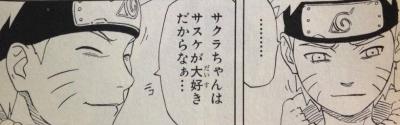 ………
サクラちゃんは
サスケが大好き
だからなぁ…